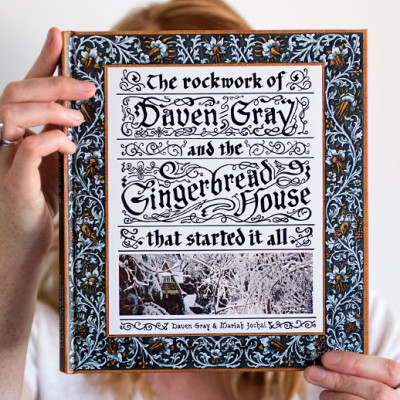 The rockwork of
Daven Gray
and the
Gingerbread
House
that started it all
Daven Gray & Mariah Jochai